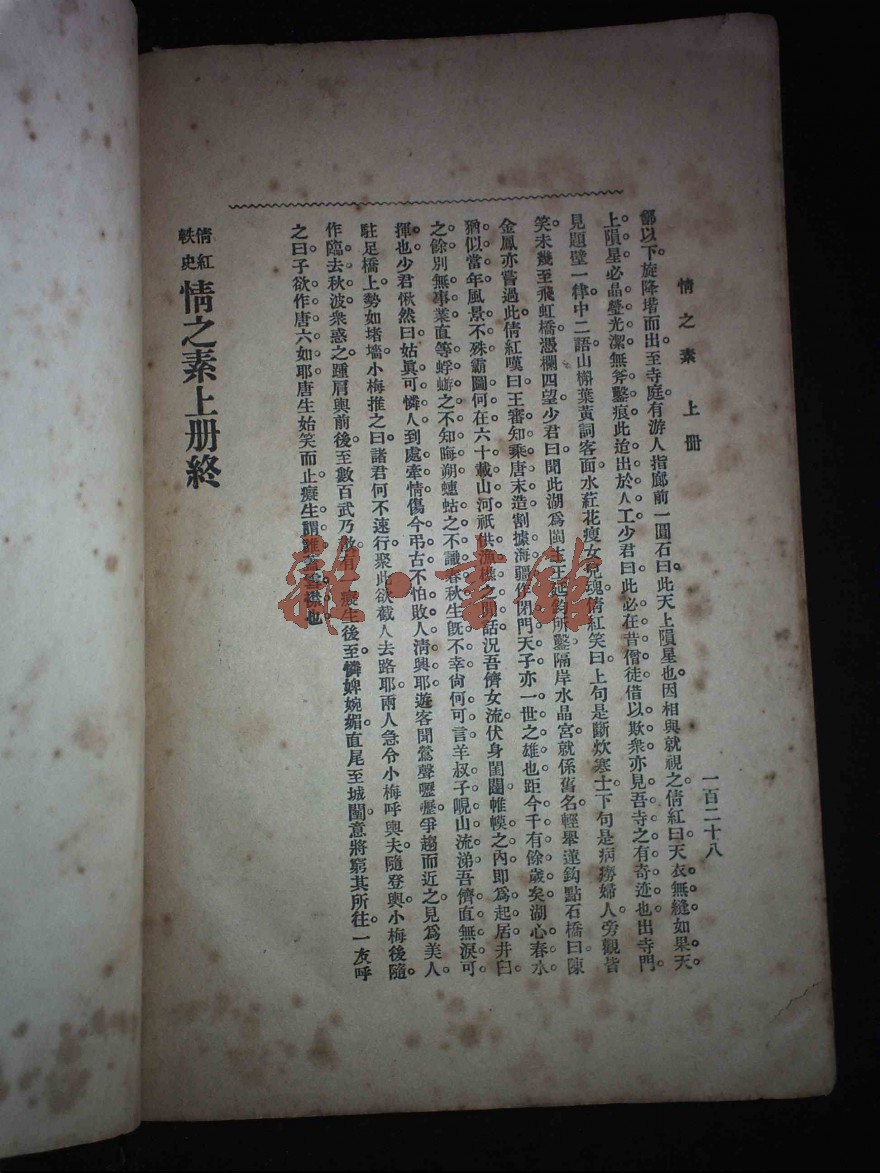 情之素　上册
一百二十八
鄒以下旋降堦而出至寺庭有游人指廊前一圓石曰此天上隕星也。因相與就視之倩紅曰天衣無縫如果天
上隕星必晶瑩光潔無斧鑿痕此迨出於人工少君曰此必在昔僧徒借以欺衆亦見吾寺之有奇迹也出寺門
見題壁一律中二語山槲葉黃詞客面水葒花瘦女兒魂倩紅笑曰上句是斷炊寒士下句是病癆婦人旁觀皆
笑。未幾至飛虹橋憑欄四望少君曰聞此湖爲閩主王延鈞所鑿隔岸水晶宮就係舊名輕舉蓮鈎點石橋曰陳
金鳳亦嘗過此倩紅嘆曰王審知乘唐末造割據海疆作閉門天子亦一世之雄也距今千有餘歲矣湖心春水
猶似當年風景不殊霸圖何在六十載山河祇供漁樵之閒話況吾儕女流伏身閨闥帷幙之內即爲起居井臼
之餘別無事業直等蜉蝣之不知晦朔蟪蛄之不識春秋生旣不幸尙何可言羊叔子峴山流涕吾儕直無淚可
揮也少君愀然曰姑眞可憐人到處牽情傷今弔古不怕敗人清興耶遊客聞鶯聲嚦嚦爭趨而近之見爲美人
駐足橋上勢如堵墻小梅推之曰諸君何不速行聚此欲截人去路耶兩人急令小梅呼輿夫隨登輿小梅後隨
作臨去秋波衆惑之踵肩輿前後至數百武乃散有一癡生後至憐婢婉媚直尾至城闉意將窮其所往一友呼
之曰子欲作唐六如耶唐生始笑而止癡生謂誰客雪襟也
倩紅
軼史
情之素上册終
龍·書館